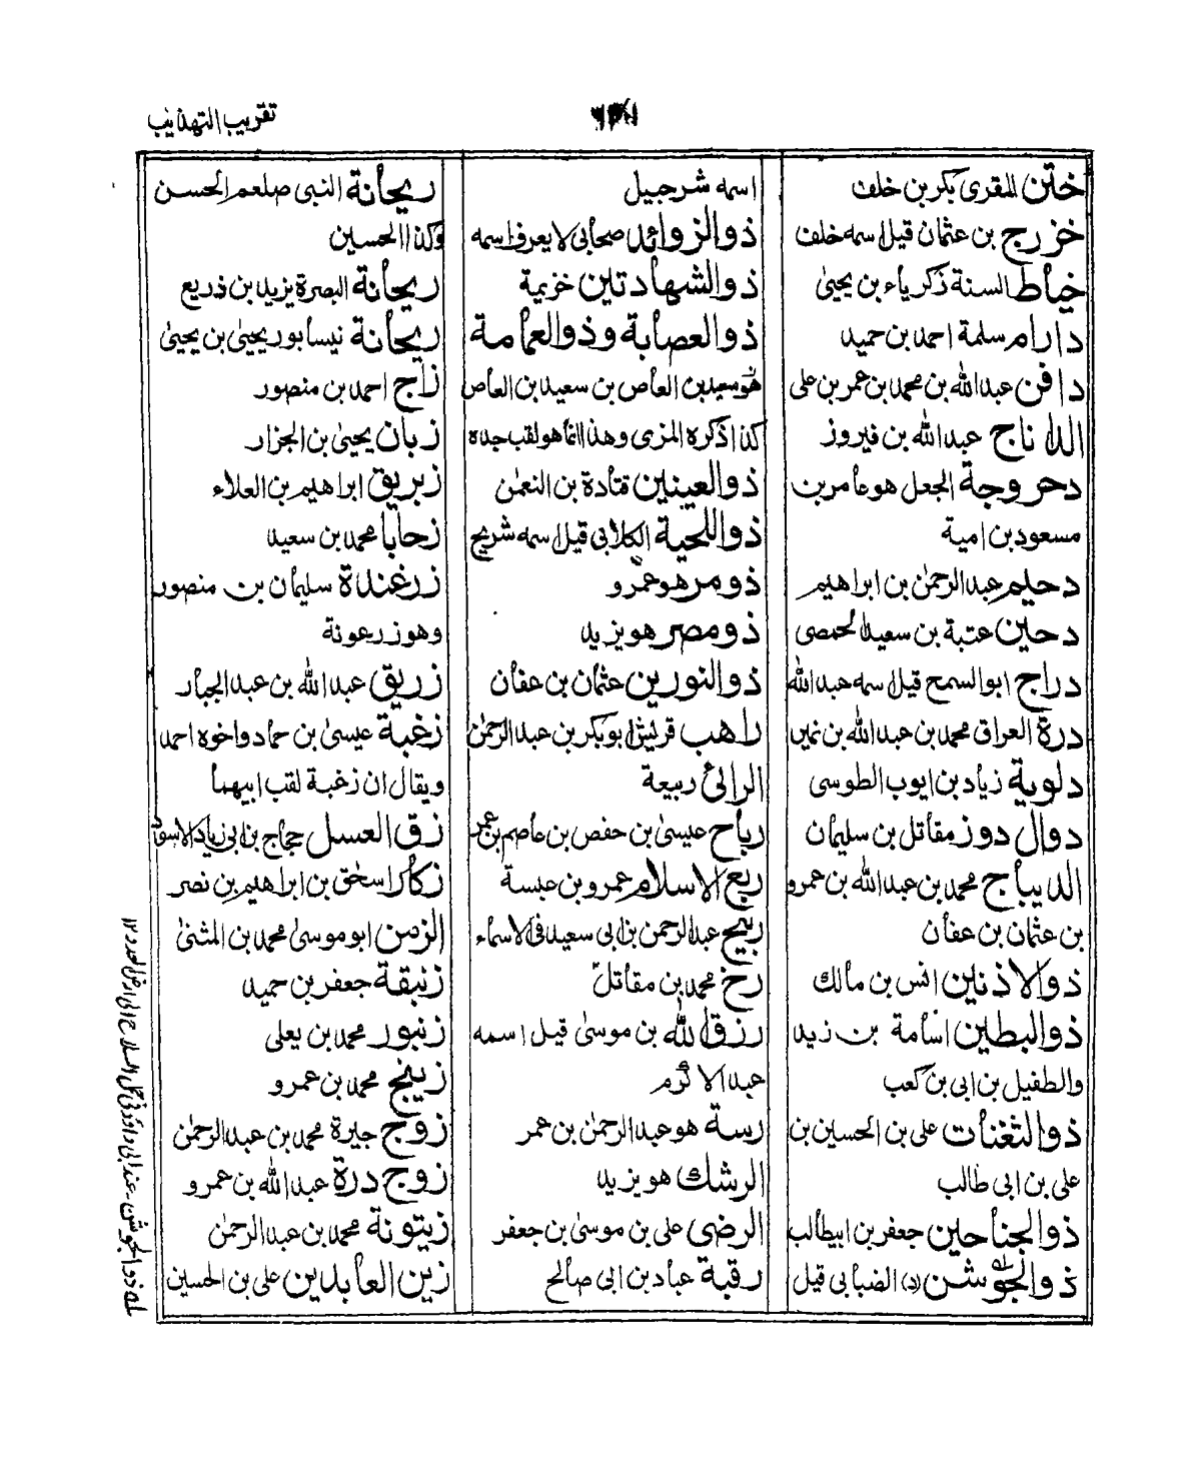 تقريب التهذيب
ختن المقرى بكر بن خلف
خزرج بن عثمان قيل اسمه خلف
خياط السنة زكرياء بن يحيىٰ
دارام سلمة احمد بن حميد
دافن عبدالله بن محمد بن عمر بن على
الداناج عبدالله بن فيروز
دحروجة الجعل هو عامر بن
مسعود بن امية
دحيم عبدالرحمٰن بن ابراهيم
دحين عتبة بن سعيد الحمصى
دراج ابو السمح قيل اسمه عبدالله
درة العراق محمد بن عبدالله بن نمير
دلوية زياد بن ايوب الطوسى
دوال دوز مقاتل بن سليمان
الديباج محمد بن عبدالله بن عمرو
بن عثمان بن عفان
ذوالاذنين انس بن مالك
ذوالبطين اسامة بن زيد
والطفيل بن ابى بن كعب
ذوالثغنات على بن الحسين بن
على بن ابى طالب
ذوالجناحين جعفر بن ابيطالب
ذوالجوشن (د) الضبابى قيل
اسمه شرحبيل
ذوالزوائد صحابى لا يعرف اسمه
ذوالشهادتين خزيمة
ذوالعصابة وذوالعمامة
هو سعيد بن العاص بن سعيد بن العاص
كذا ذكره المزى وهذا انما هو لقب جده
ذوالعينين قتادة بن النعمٰن
ذواللحية الكلابى قيل اسمه شريح
ذومر هو عمرو
ذومصر هو يزيد
ذوالنورين عثمان بن عفان
راهب قريش ابو بكر بن عبدالرحمٰن
الرائى ربيعة
رباح عيسىٰ بن حفص بن عاصم بن عمر
ربع الاسلام عمرو بن عبسة
ربيح عبدالرحمن بن ابى سعيد فى الاسماء
رخ محمد بن مقاتل
رزق الله بن موسىٰ قيل اسمه
عبد الاكرم
رستة هو عبدالرحمٰن بن عمر
الرشك هو يزيد
الرضى على بن موسىٰ بن جعفر
رقبة عباد بن ابى صالح
ريحانة النبى صلعم الحسن
وكذا الحسين
ريحانة البصرة يزيد بن ذريع
ريحانة نيسابور يحيىٰ بن يحيىٰ
زاج احمد بن منصور
زبان يحيىٰ بن الجزار
زبريق ابراهيم بن العلاء
زحابا محمد بن سعيد
زرغندة سليمان بن منصور
وهو زرعونة
زريق عبدالله بن عبدالجبار
زغبة عيسىٰ بن حماد واخوه احمد
ويقال ان زغبة لقب ابيهما
زق العسل حجاج بن ابى زياد الاسود
زكار اسحٰق بن ابراهيم بن نصر
الزمن ابو موسىٰ محمد بن المثنىٰ
زنبقة جعفر بن حميد
زنبور محمد بن يعلى
زينج محمد بن عمرو
زوج جبرة محمد بن عبدالرحمٰن
زوج درة عبدالله بن عمرو
زيتونة محمد بن عبدالرحمٰن
زين العابدين على بن الحسين
له ذو الجوشن - عند ابى داؤد فى السلاح الى ارض العدو ١٢